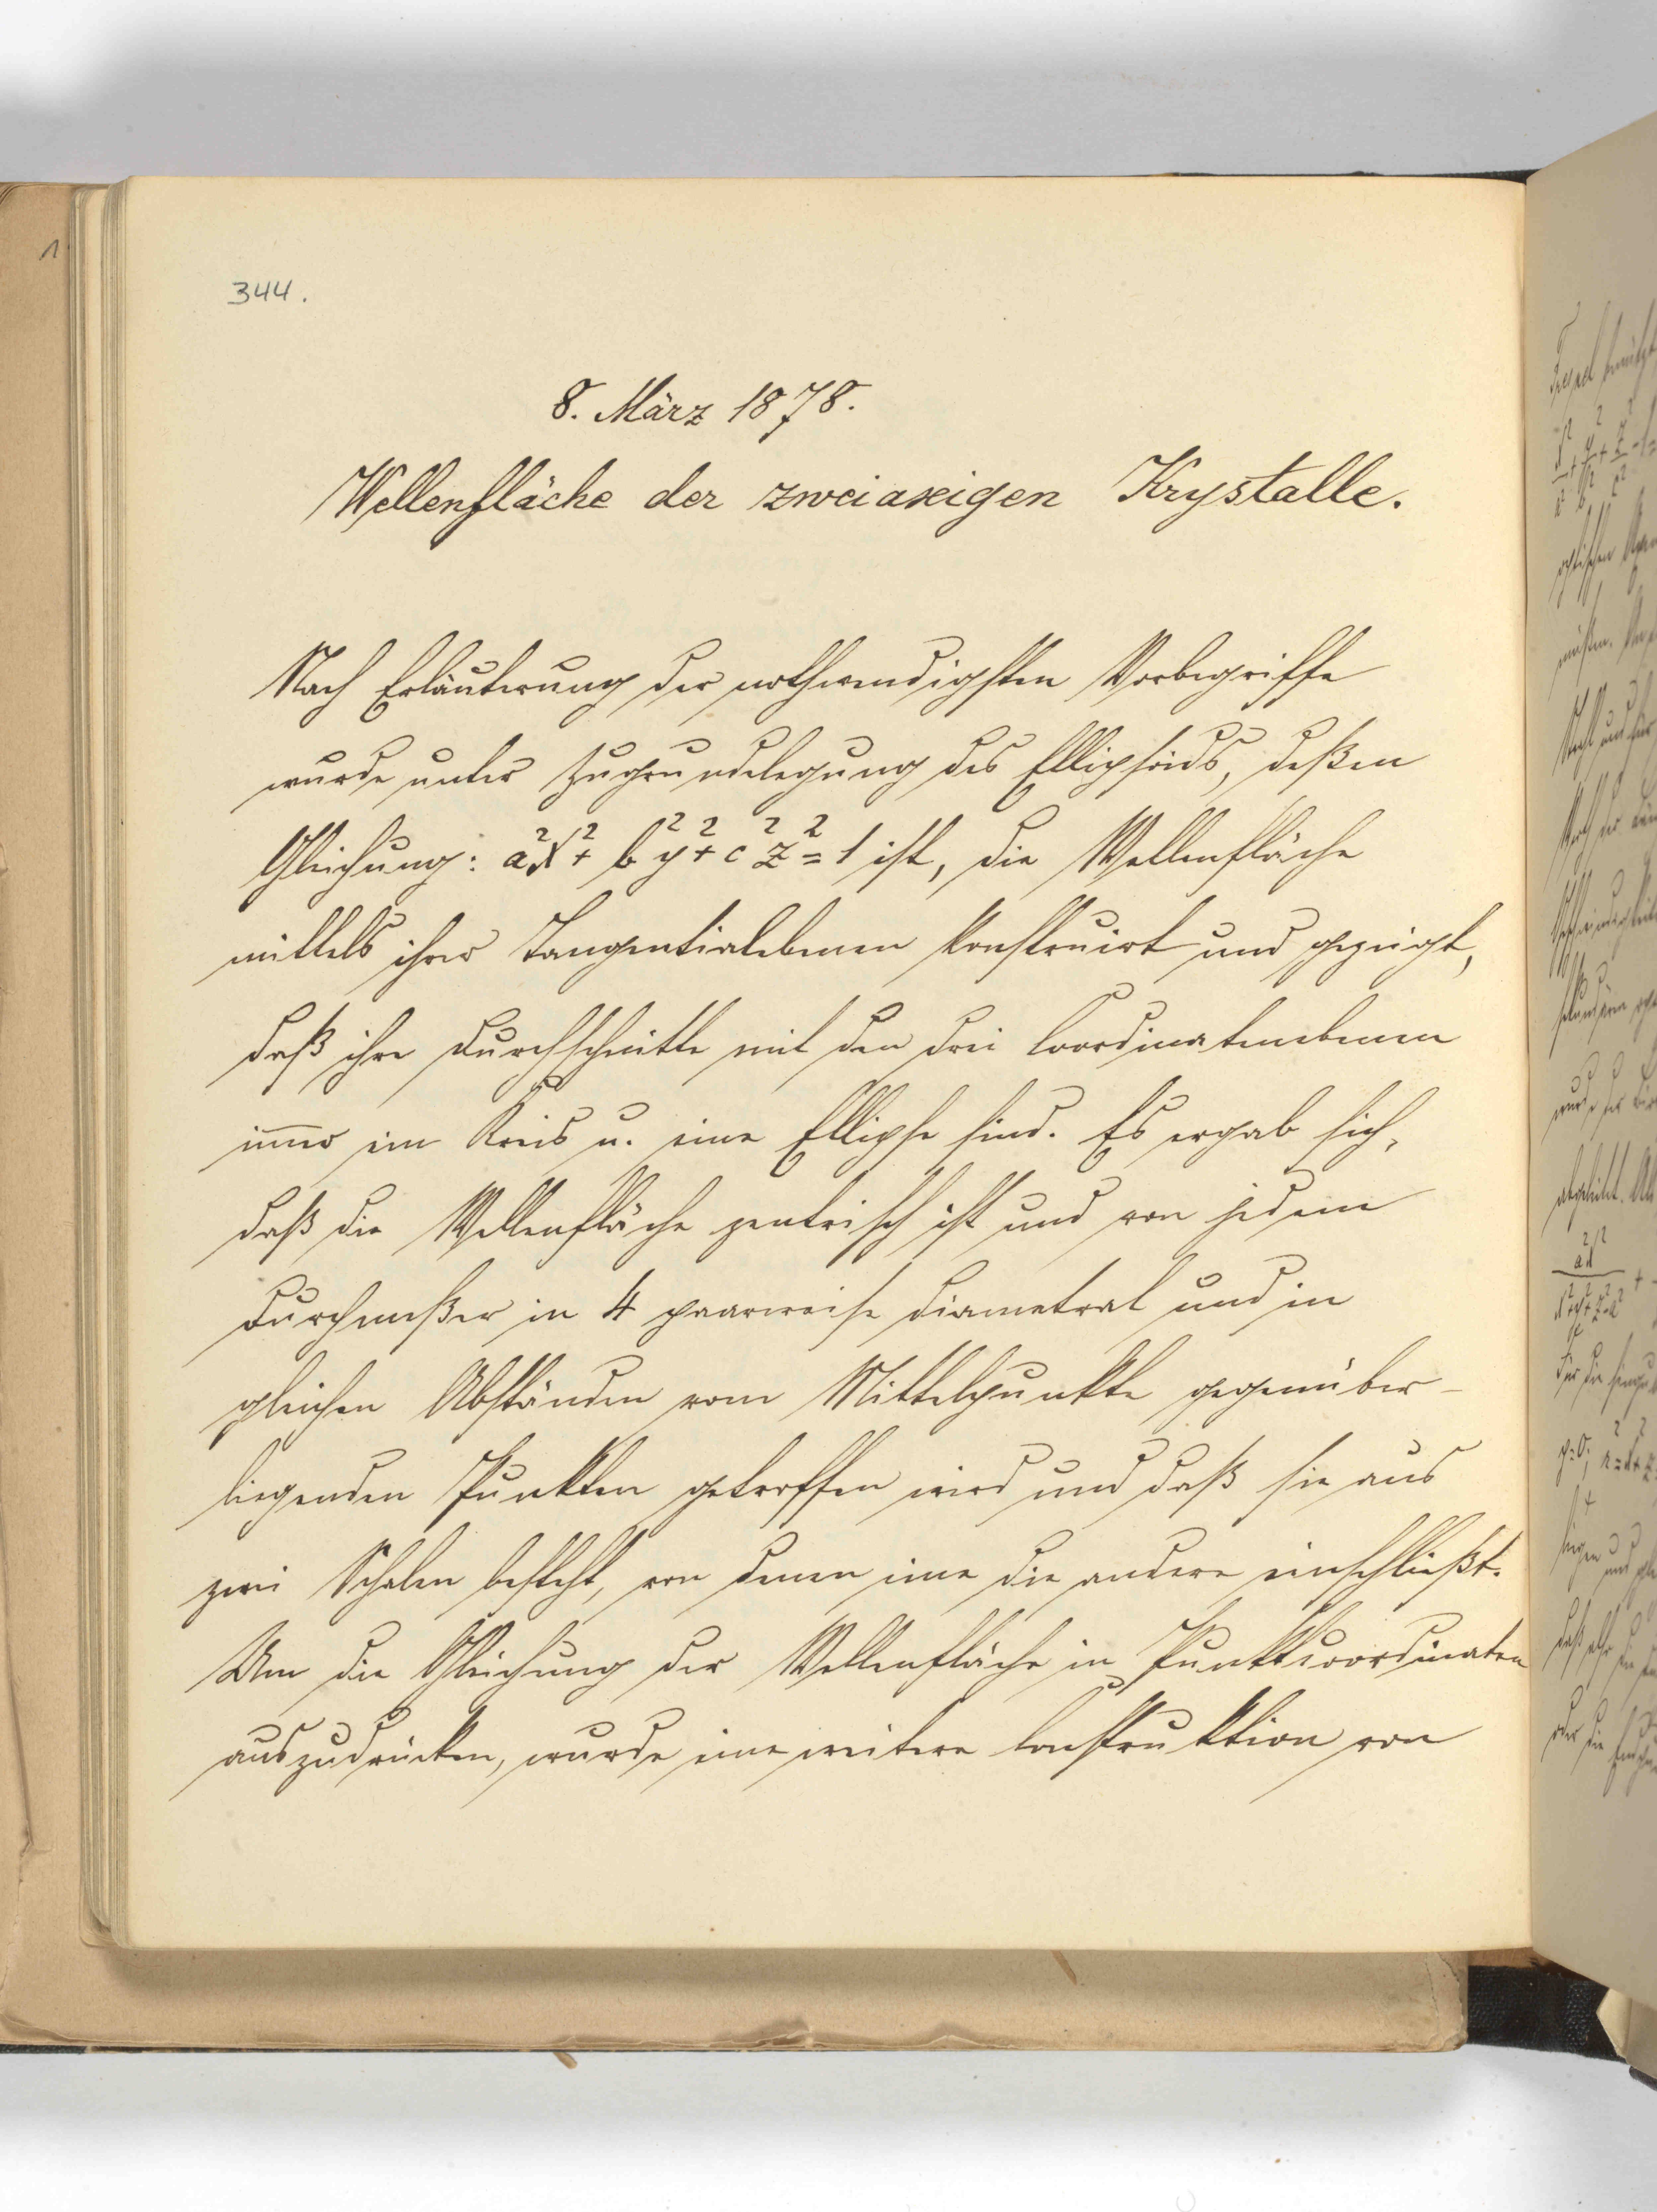 344.
8. März 1878.
Wellenfläche der zweiaxigen Krystalle.
Nach Erläuterung der nothwendigsten Vorbegriffe
wurde unter Zugrundelegung des Ellipsoids, deßen
Gleichung: a²x² + b²y² + c²z² = 1 ist, die Wellenfläche
mittels ihrer Tangentialebenen konstruirt und gezeigt,
daß ihre Durchschnitte mit den drei Coordinatenebenen
immer ein Kreis u. eine Ellipse sind. Es ergab sich,
daß die Wellenfläche zentrisch ist und von jedem
Durchmeßer in 4 paarweise diametral und in
gleichen Abständen vom Mittelpunkte gegenüber-
liegenden Punkten getroffen wird und daß sie aus
zwei Schalen besteht, von denen eine die andere einschließt.
Um die Gleichung der Wellenfläche in Punktcoordinaten
auszudrücken, wurde eine weitere Construktion von